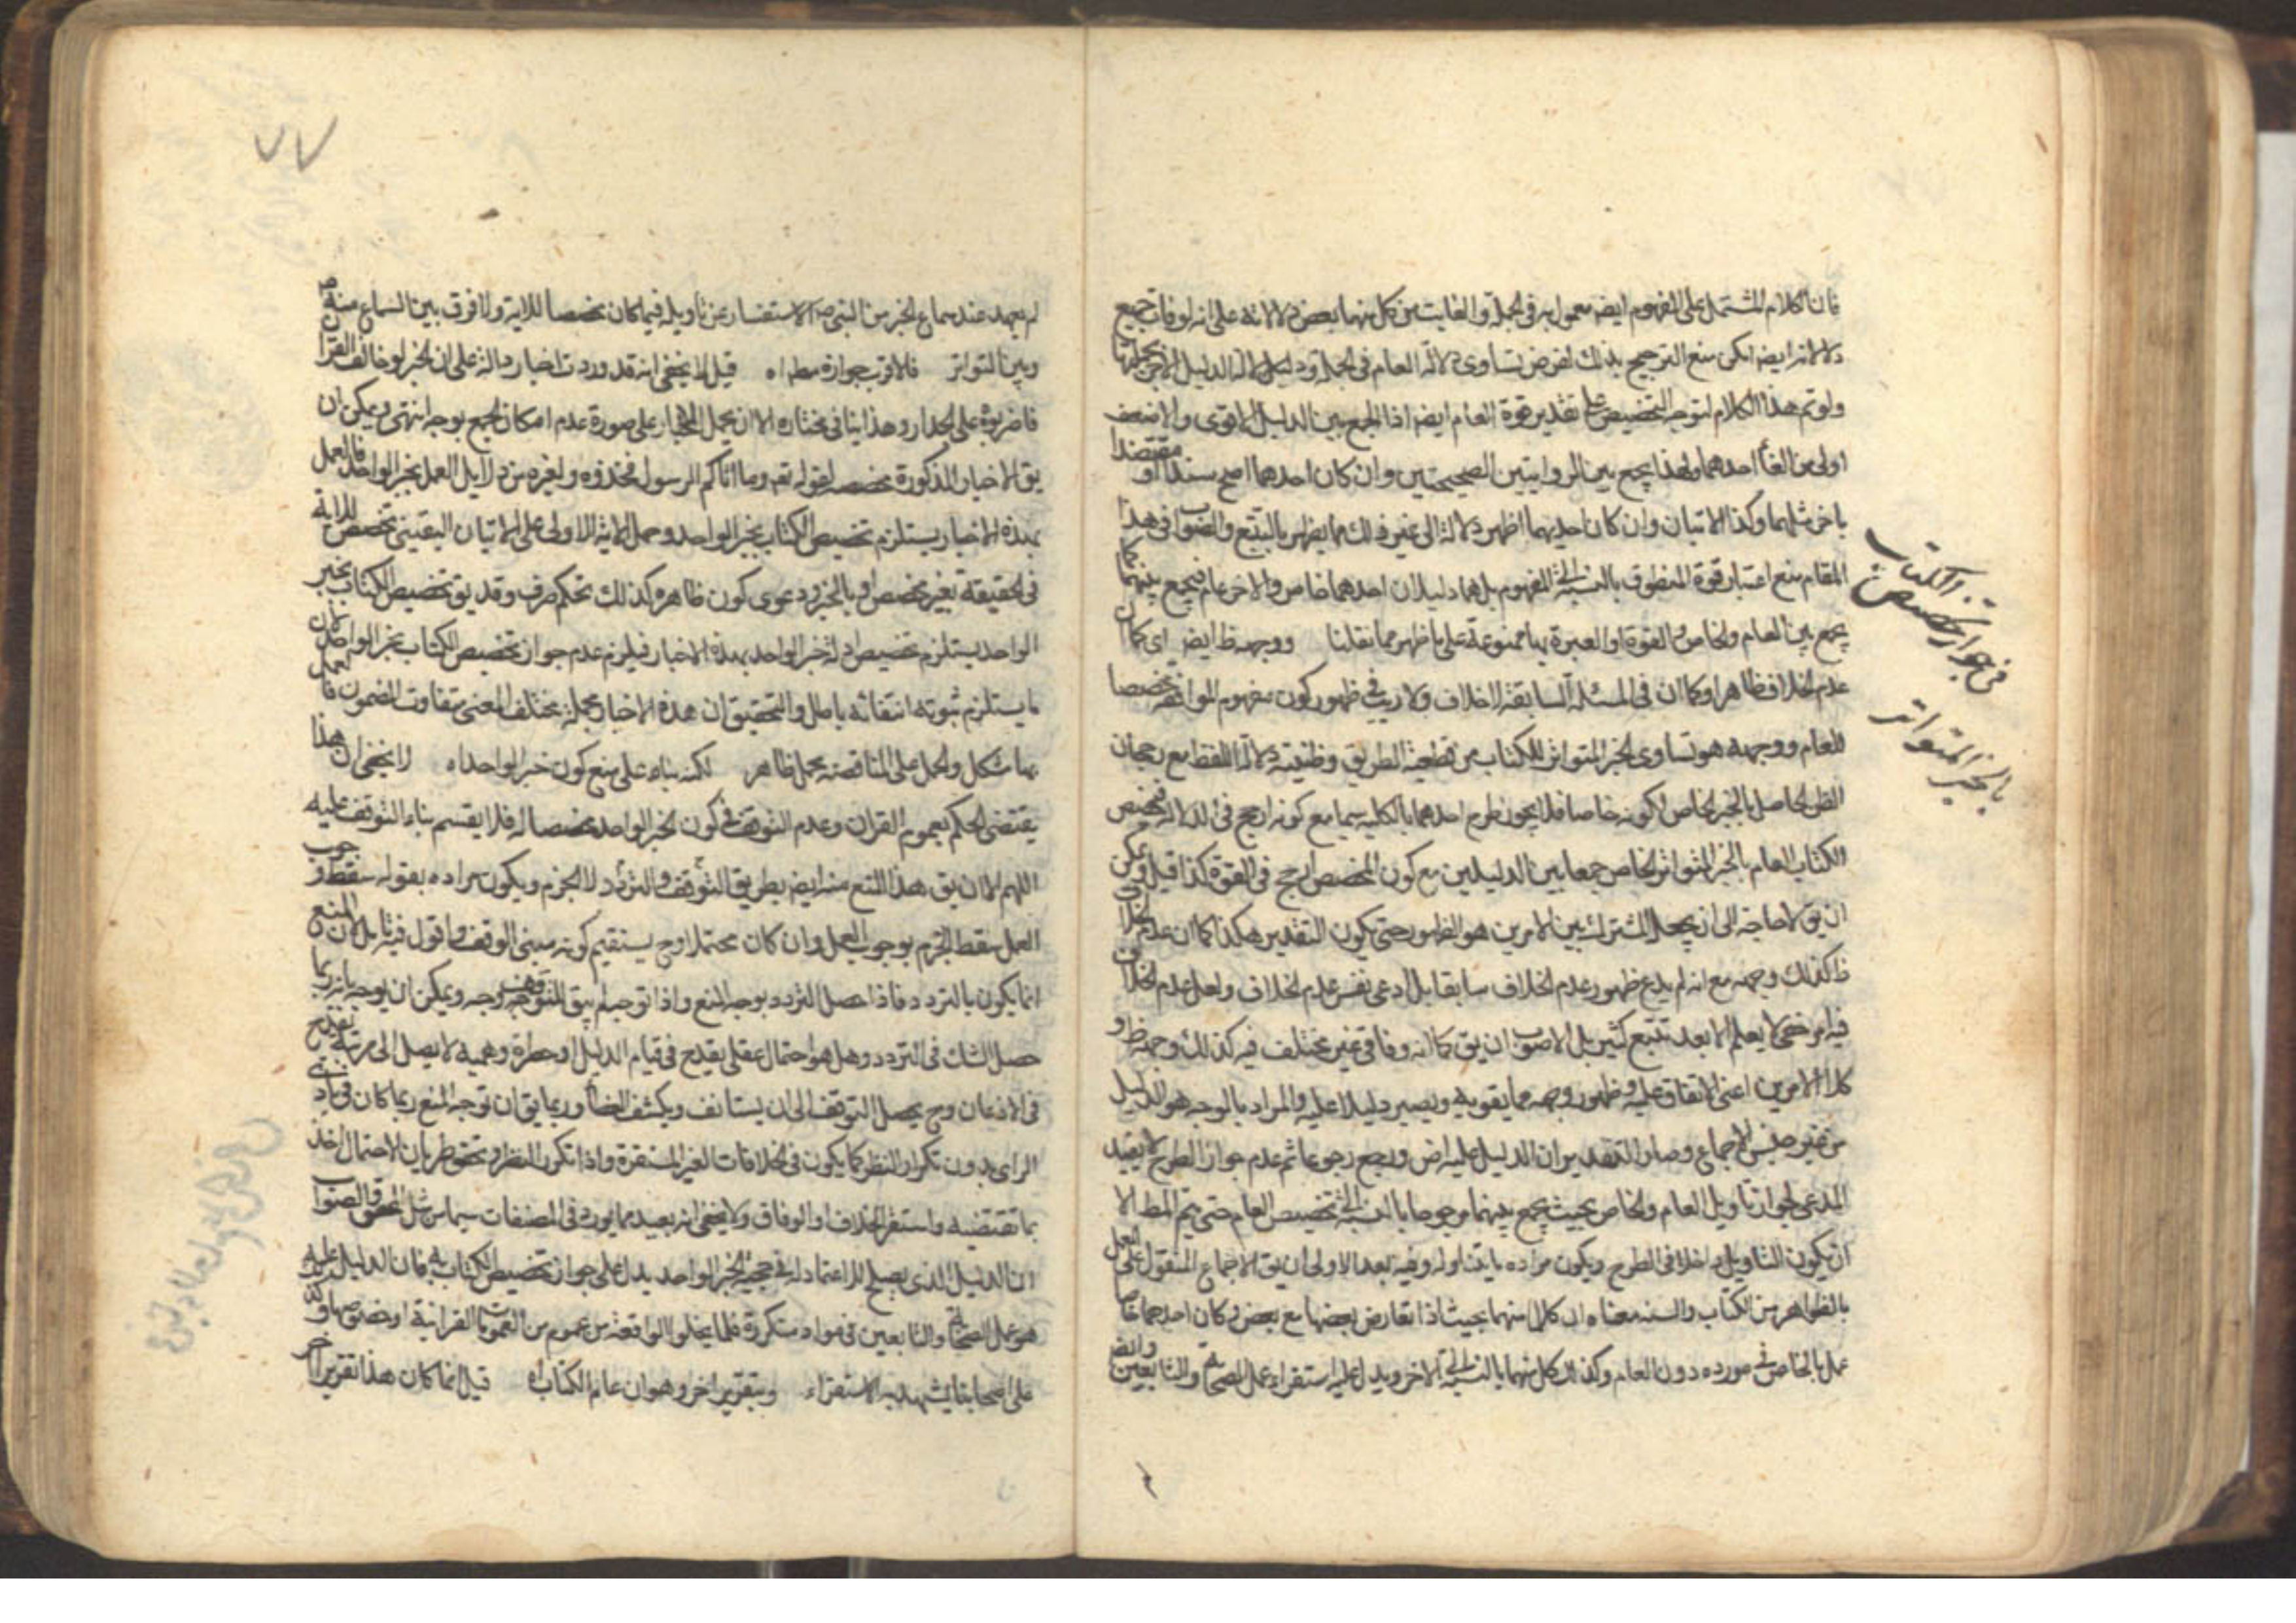 فان الكلام المشتمل على المفهوم ايضا معمول به في الجملة والغايت من كل منهما بعض دلالاته على انه لو فات جميع
دلالاته ايضا امكن منع الترجيح بذلك لفرض تساوي دلالة العام في الجملة ودليل
ولو تم هذا الكلام لتوجه التخصيص على تقدير قوة العام ايضا اذ الجمع بين الدليل الاقوى والاضعف
اولى من الغاء احدهما ولهذا يجمع بين الروايتين الصحيحتين وان كان احدهما اصح سندا او معتضدا
باخرى مثلها وكذا الايتان وان كان احديهما اظهر دلالة الى غير ذلك مما يظهر بالتتبع والصواب في هذا
المقام منع اعتبار قوة المنطوق بالنسبة الى المفهوم بل هما دليلان احدهما خاص والاخر عام فيجمع بينهما كما
يجمع بين العام والخاص والقوة او العبرة بها ممنوعة على ما ظهر مما نقلنا ووجهه ظ ايضا اي كما ان
عدم الخلاف ظاهر او كما ان في المسئلة السابقة الخلاف ولا ريب في ظهور كون مفهوم الموافقة مخصصا
للعام ووجهه هو تساوي الخبر المتواتر للكتاب من قطعية الطريق وظنية دلالة اللفظ مع رجحان
الظن الحاصل بالخبر الخاص لكونه خاصا فلا يجوز طرح احدهما بالكلية سيما مع كونه ارجح في الدلالة فيخصص
الكتاب العام بالخبر المتواتر الخاص جمعا بين الدليلين مع كون المخصص ارجح في القوة كذا قيل ويمكن
ان يق لا حاجة الى ان يجعل المشترك بين الامرين هو الظهور حتى يكون التقدير هكذا كما ان عدم الخلاف
ظ كذلك وجهه مع انه لم يدع ظهور عدم الخلاف سابقا بل ادعى نفس عدم الخلاف ولعل عدم الخلاف
فيه امر خفي لا يعلم الا بعد تتبع كثير بل الاصوب ان يق كما انه وفاقي غير مختلف فيه كذلك وجهه ظ و
كلا الامرين اعني الاتفاق عليه وظهور وجهه مما يقويه ويصير دليلا عليه والمراد بالوجه هو الدليل
من غير جنس الاجماع وصار التقدير ان الدليل عليه ورجع رجوعا ثم عدم جواز الطرح لا يفيد
المدعى لجواز تاويل العام والخاص بحيث يجمع بينهما مرجوحا بالنسبة الى تخصيص العام حتى يتم المط الا
ان يكون التاويل داخلا في الطرح ويكون مراده ما يتناوله وفيه بعد الاولى ان يق الاجماع المنقول على العمل
بالظواهر من الكتاب والسنة معناه ان كلا منهما بحيث اذا تعارض بعضها مع بعض وكان احدهما خاصا
عمل بالخاص في مورده دون العام وكذا كل منهما بالنسبة الى الاخر ويدل عليه استقراء عمل الصحابة والتابعين وايضا
في جواز تخصيص الكتاب
بالخبر المتواتر
٧٧
لم يعهد عند سماع الخبر من النبي ص الاستفسار عن تاويله فيما كان مخصصا للاية ولا فرق بين السماع منه ص
وبين التواتر فلاقرب جوازه مط اه قيل لا يخفى انه قد وردت اخبار دالة على ان الخبر لو خالف القران
فاضربوه على الجدار وهذا ينافي مختاره الا ان يحمل الاخبار على صورة عدم امكان الجمع بوجه انتهى ويمكن ان
يق الاخبار المذكورة مخصصة لقوله تع وما اتاكم الرسول فخذوه ولغيره من دلايل العمل بخبر الواحد فالعمل
بهذه الاخبار يستلزم تخصيص الكتاب بخبر الواحد وحمل الاية الاولى على الاتيان اليقيني تخصيص للاية
في الحقيقة بغير مخصص او بالخبر ودعوى كون ظاهره كذلك تحكم صرف وقد يق تخصيص الكتاب بخبر
الواحد يستلزم تخصيص ادلة خبر الواحد بهذه الاخبار فيلزم عدم جواز تخصيص الكتاب بخبر الواحد لان
ما يستلزم ثبوته انتفائه باطل والتحقيق ان هذه الاخبار مجملة مختلف المعنى متفاوت المضمون فالعمل
بها مشكل والحمل على المناقضة محمل ظاهر لكنه بناء على منع كون خبر الواحد اه لا يخفى ان هذا
يقتضي الحكم بعموم القران وعدم التوقف في كون الخبر الواحد مخصصا له فلا يقسم بناء التوقف عليه
اللهم الا ان يق هذا المنع منه ايضا بطريق التوقف والتردد لا الجزم ويكون مراده بقوله سقط وجوب
العمل سقط الجزم بوجوب العمل وان كان محتملا وح يستقيم كونه مبنى الوقف واقول فيه تامل لان المنع
انما يكون بالتردد فاذا حصل التردد بوجه المنع واذا توجه لم يبق للتوقف وجه ويمكن ان يوجه بانه ربما
حصل الشك في التردد وهل هو احتمال عقلي يقدح في قيام الدليل او خطرة وهمية لا يصل الى مرتبة تقدح
في الاذعان وح يحصل التوقف الى ان يستانف ويكشف الغطا وربما يق ان توجه المنع ربما كان في بادي
الراي بدون تكرار النظر كما يكون في الخلافات الغير المستقرة واذا تكرر النظر وتحقق طريان الاحتمال اخذ
بما تقتضيه واستقر الخلاف او الوفاق ولا يخفى انه بعيد مما يورد في المصنفات سيما من مثل المحقق والصواب
ان الدليل الذي يصلح للاعتماد له في حجية الخبر الواحد يدل على جواز تخصيص الكتاب به فان الدليل عليه
هو عمل الصحابة والتابعين في مواد متكررة قلما يخلوا الواقعة من عموم من العمومات القرانية او خصوصها
على اصحابنا يشهد به الاستقراء وبتقرير اخر وهو ان عام الكتاب اه قيل انما كان هذا تقريرا اخر